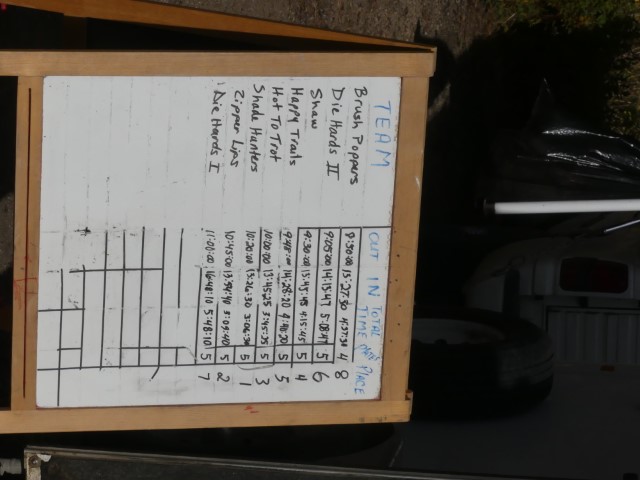 TEAM OUT IN TOTAL TIME PLACE
Brush Poppers 8:50:00 13:27:30 4:37:30 4 8
Die Hards II 9:05:00 14:13:47 5:08:47 5 6
Shaw 9:30:00 13:45:45 4:15:45 5 4
Happy Trails 9:48:00 14:28:20 4:40:20 5 5
Hot To Trot 10:00:00 13:45:25 3:45:25 5 3
Shade Hunters 10:20:00 13:26:30 3:06:30 5 1
Zipper Lips 10:45:00 13:54:40 3:09:40 5 2
Die Hards I 11:00:00 16:48:10 5:48:10 5 7